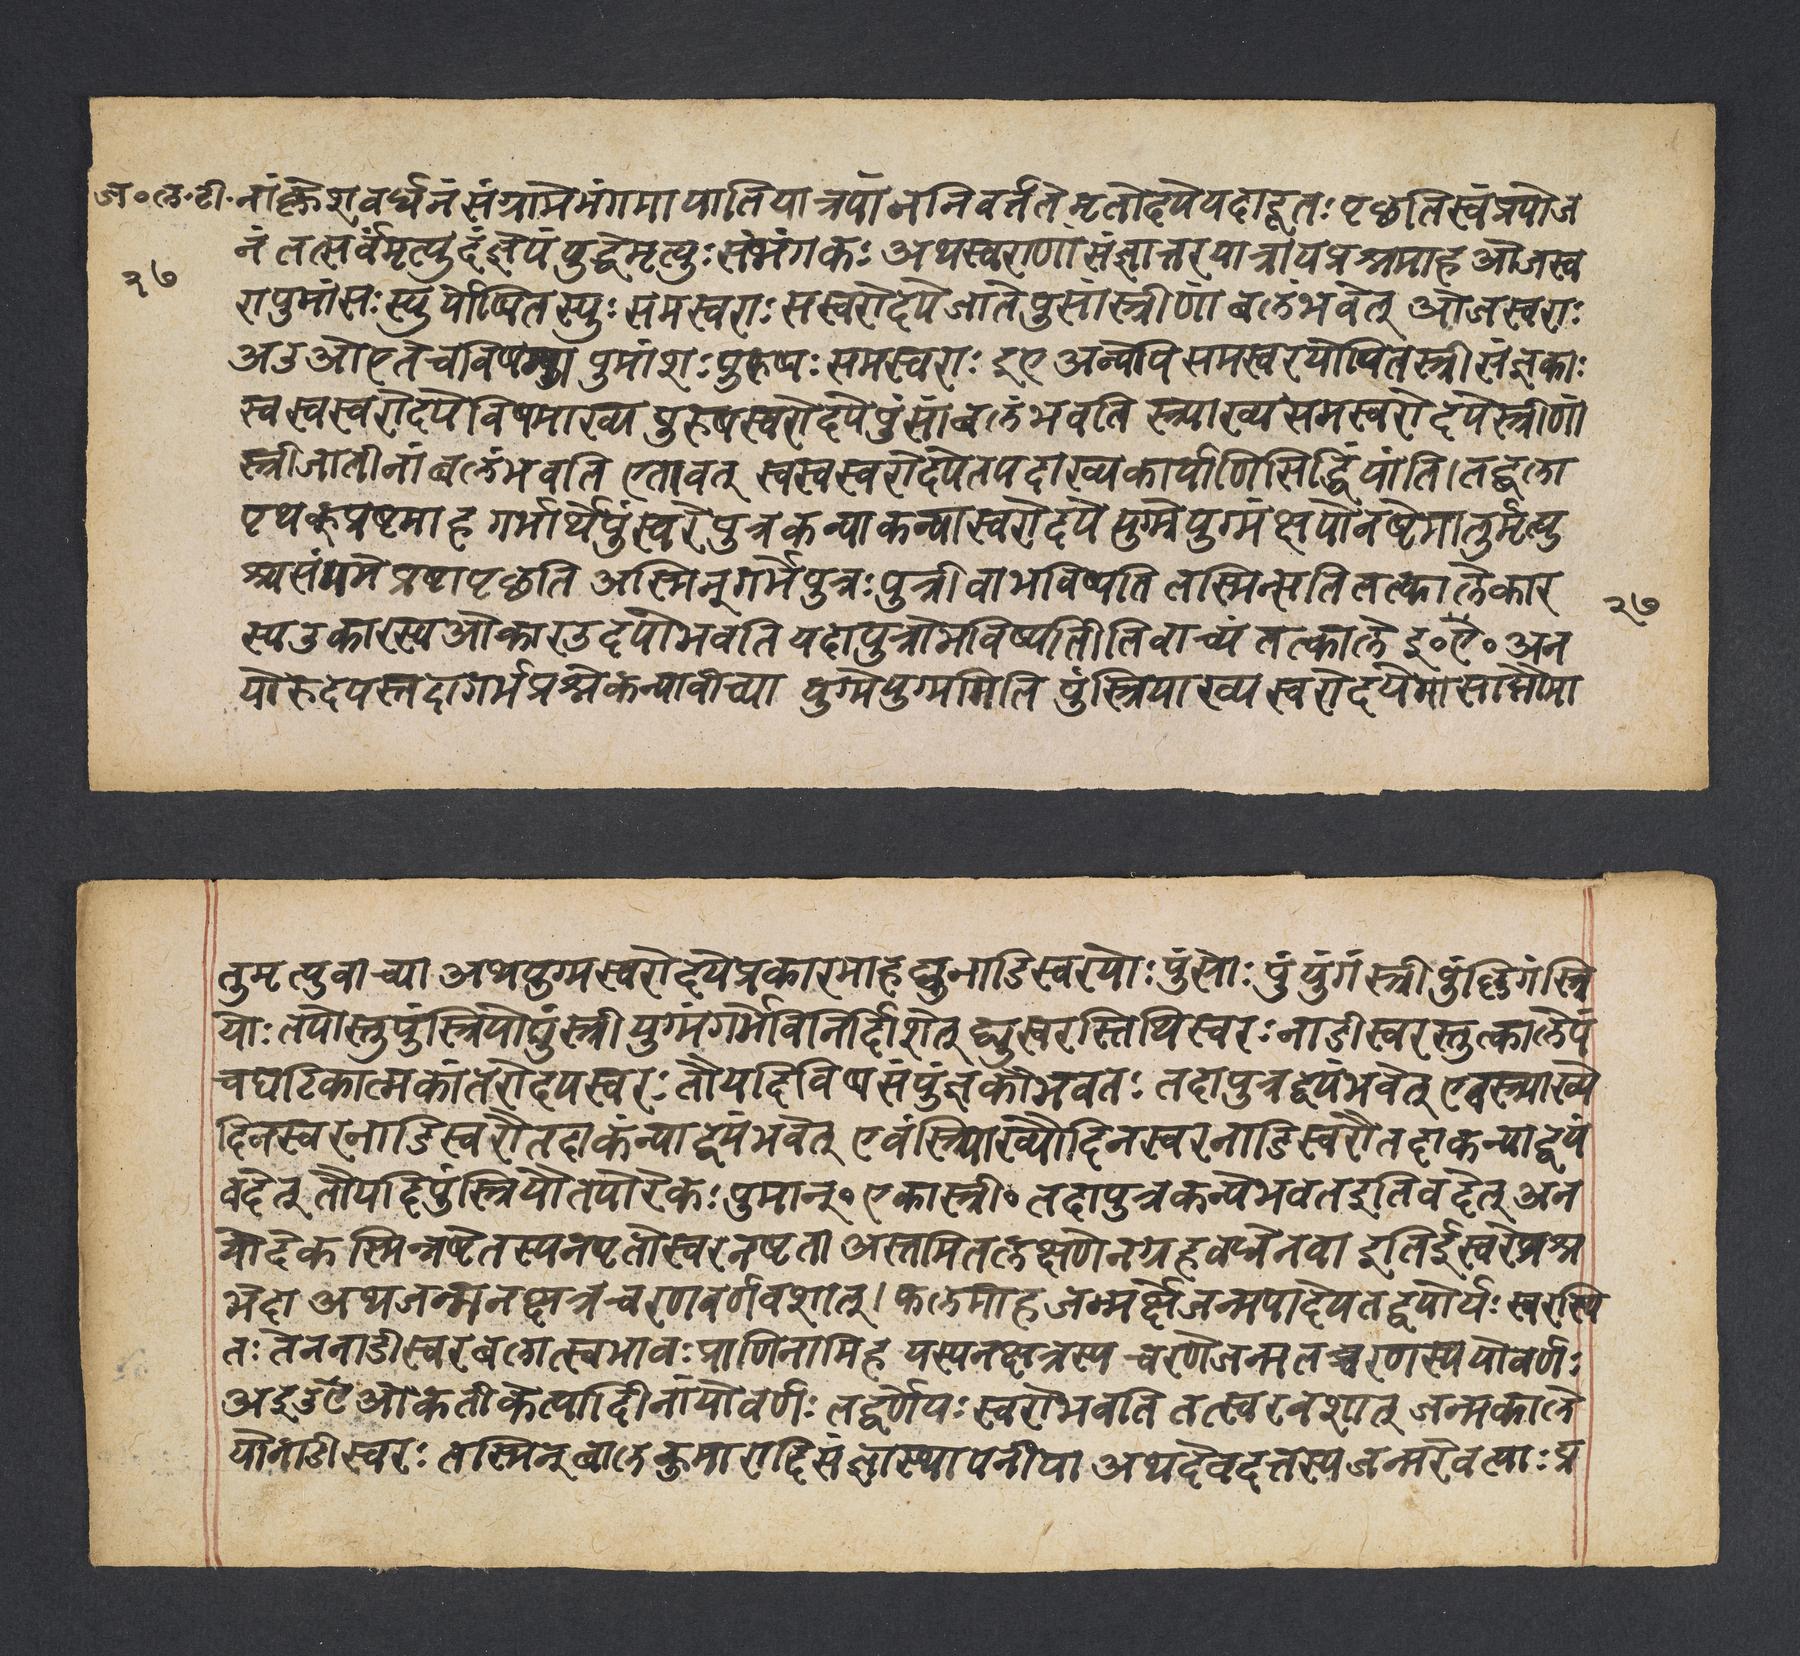 ज॰ल॰टी॰ नां क्लेशवर्धनं संग्रामे भंगमायाति यात्रयां न निवर्तते मृतोदये यदा दूतः पृछति स्वं प्रयोज
नं तत्सर्वं मृत्युदं ज्ञेयं युद्धे मृत्युः सभंगकः अथ स्वराणां संज्ञान्तरयात्रायप्रश्नमाह ओजस्व
२७
रा पुमांसः स्युर्योषित स्युः समस्वराः सस्वरोदये जाते पुसां स्त्रीणां बलं भवेत् ओजस्वराः
अ उ ओ एते च विषमा पुमांशः पुरुषः समस्वराः इ ए अन्येपि समस्वर योषित स्त्रीसंज्ञकाः
स्वस्वस्वरोदये विषमाख्य पुरुषस्वरोदये पुंसां बलं भवति स्त्र्याख्य समस्वरोदये स्त्रीणां
स्त्रीजातीनां बलं भवति एतावत् स्वस्वस्वरोदये तपदाख्यकार्याणि सिद्धिं यांति। तद्बला
पृथक् प्रष्टमाह गर्भार्थे पुंस्वरे पुत्र कन्या कन्यास्वरोदये युग्मे युग्मं क्षयो नष्टे मातुर्मृत्यु
श्च संगमे प्रष्टा पृछति अस्मिन् गर्भे पुत्रः पुत्री वा भविष्यति तस्मिन्सति तत्काले कार
२७
स्य उकारस्य ओकार उदयो भवति यदा पुत्रो भविष्यतीति वाच्यं तत्काले इ॰ ए॰ अन
यो रुदयस्तदा गर्भप्रश्ने कन्या वाच्या युग्मे युग्ममिति पुंस्त्रियाख्य स्वरोदये मासाम्नो मा
तुमृत्यु वाच्या अथ युग्मस्वरोदये प्रकारमाह द्युनाडिस्वरयोः पुंसोः पुं युंगं स्त्री पुंल्लिगं स्त्रि
योः तयोस्तु पुंस्त्रियो पुंस्त्री युग्मं गर्भे विनिर्दिशेत् द्युस्वरस्तिथिस्वरः नाडीस्वरस्तु त्काले पं
चघटिकात्मकांतरोदयस्वरः तौ यदि विषसंपुंज्ञकौ भवतः तदा पुत्रद्वयं भवेत् एव स्त्र्याख्ये
दिनस्वरनाडिस्वरौ तदा कंन्याद्वयं भवेत् एवं स्त्रियाख्यौ दिनस्वरनाडिस्वरौ तदा कन्याद्वयं
वदेत् तौ यदि पुंस्त्रियौ तयोरेकः पुमान्॰ एका स्त्री॰ तदा पुत्रकन्ये भवत इति वदेत् अन
योदेकस्मिन्नष्टे तस्य नष्टतो स्वरनष्टता अस्तमितलक्षणेन ग्रहवप्नेन वा इति ई स्वरे प्रश्न
भेदा अथ जन्मनक्षत्रचरणवर्णवशात्। फलमाह जन्मर्क्षे जन्मपादे यतद्वयोर्यः स्वर स्थि
तः तेन नाडीस्वरबलोत्स्वभावः प्राणिनामिह यस्य नक्षत्रस्य चरणे जन्म तच्चरणस्य यो वर्णः
अ इ उ ए ओ क ती केत्यादीनां यो वर्णः तद्वर्णे यः स्वरो भवति तत्स्वरवशात् जन्मकाले
यो नाडीस्वरः तस्मिन् बाल कुमारादि संज्ञा स्थापनीया अथ देवदत्तस्य जन्म रेवत्याः प्र